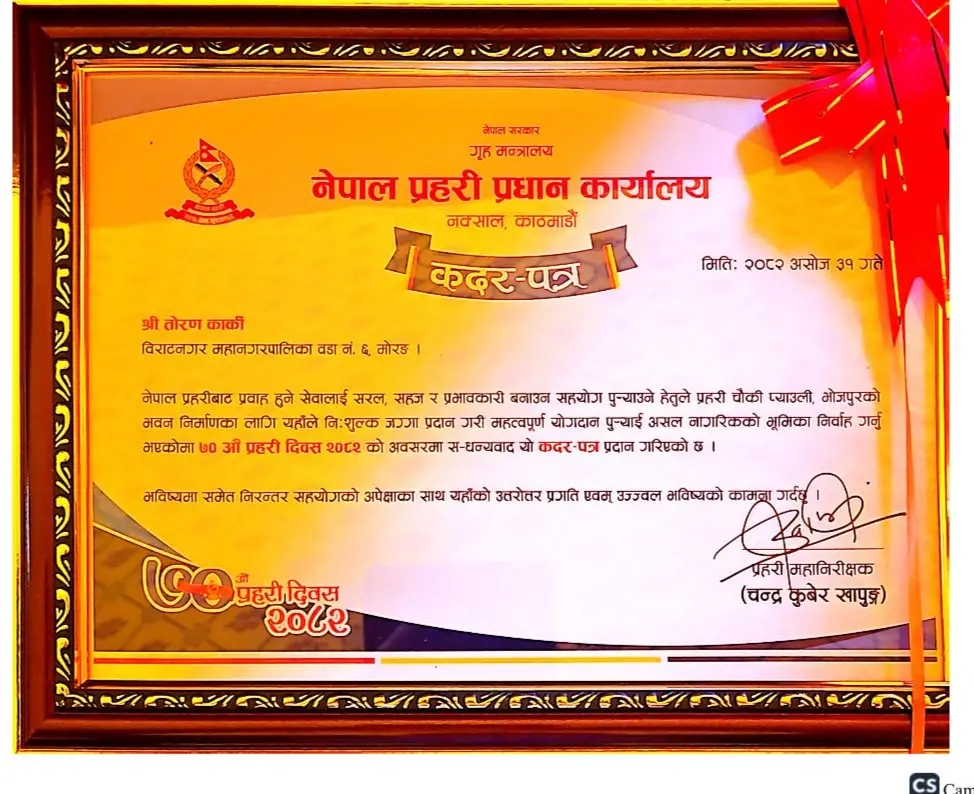 नेपाल सरकार
गृह मन्त्रालय
नेपाल प्रहरी प्रधान कार्यालय
नक्साल, काठमाडौं
कदर-पत्र
मितिः २०८२ असोज ३१ गते
श्री तोरण कार्की
विराटनगर महानगरपालिका वडा नं. ६, मोरङ ।
नेपाल प्रहरीबाट प्रवाह हुने सेवालाई सरल, सहज र प्रभावकारी बनाउन सहयोग पुऱ्याउने हेतुले प्रहरी चौकी प्याउली, भोजपुरको
भवन निर्माणका लागि यहाँले निःशुल्क जग्गा प्रदान गरी महत्वपूर्ण योगदान पुऱ्याई असल नागरिकको भूमिका निर्वाह गर्नु
भएकोमा ७० औं प्रहरी दिवस २०८२ को अवसरमा स-धन्यवाद यो कदर-पत्र प्रदान गरिएको छ ।
भविष्यमा समेत निरन्तर सहयोगको अपेक्षाका साथ यहाँको उत्तरोत्तर प्रगति एवम् उज्ज्वल भविष्यको कामना गर्दछु ।
प्रहरी महानिरीक्षक
(चन्द्र कुबेर खापुङ)
७० औं
प्रहरी दिवस
२०८२
CS Cam